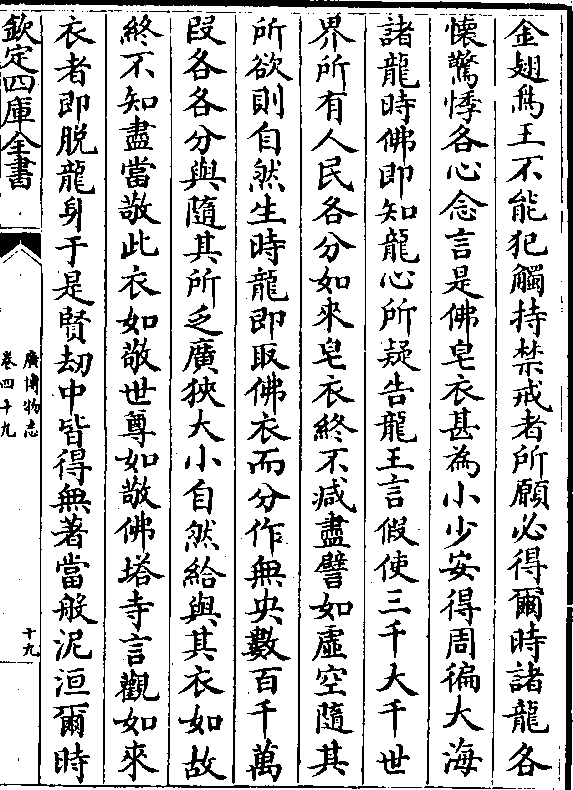 金翅鳥王不能犯觸持禁戒者所願必得爾時諸龍各
懷驚悸各心念言是佛皂衣甚為小少安得周徧大海
諸龍時佛即知龍心所疑告龍王言假使三千大千世
界所有人民各分如來皂衣終不減盡譬如虛空隨其
所欲則自然生時龍即取佛衣而分作無央數百千萬
段各各分與隨其所乏廣狹大小自然給與其衣如故
終不知盡當敬此衣如敬世尊如敬佛塔寺言觀如來
衣者即脫龍身于是賢劫中皆得無著當般泥洹爾時
欽定四庫全書
廣博物志
卷四十九
十九